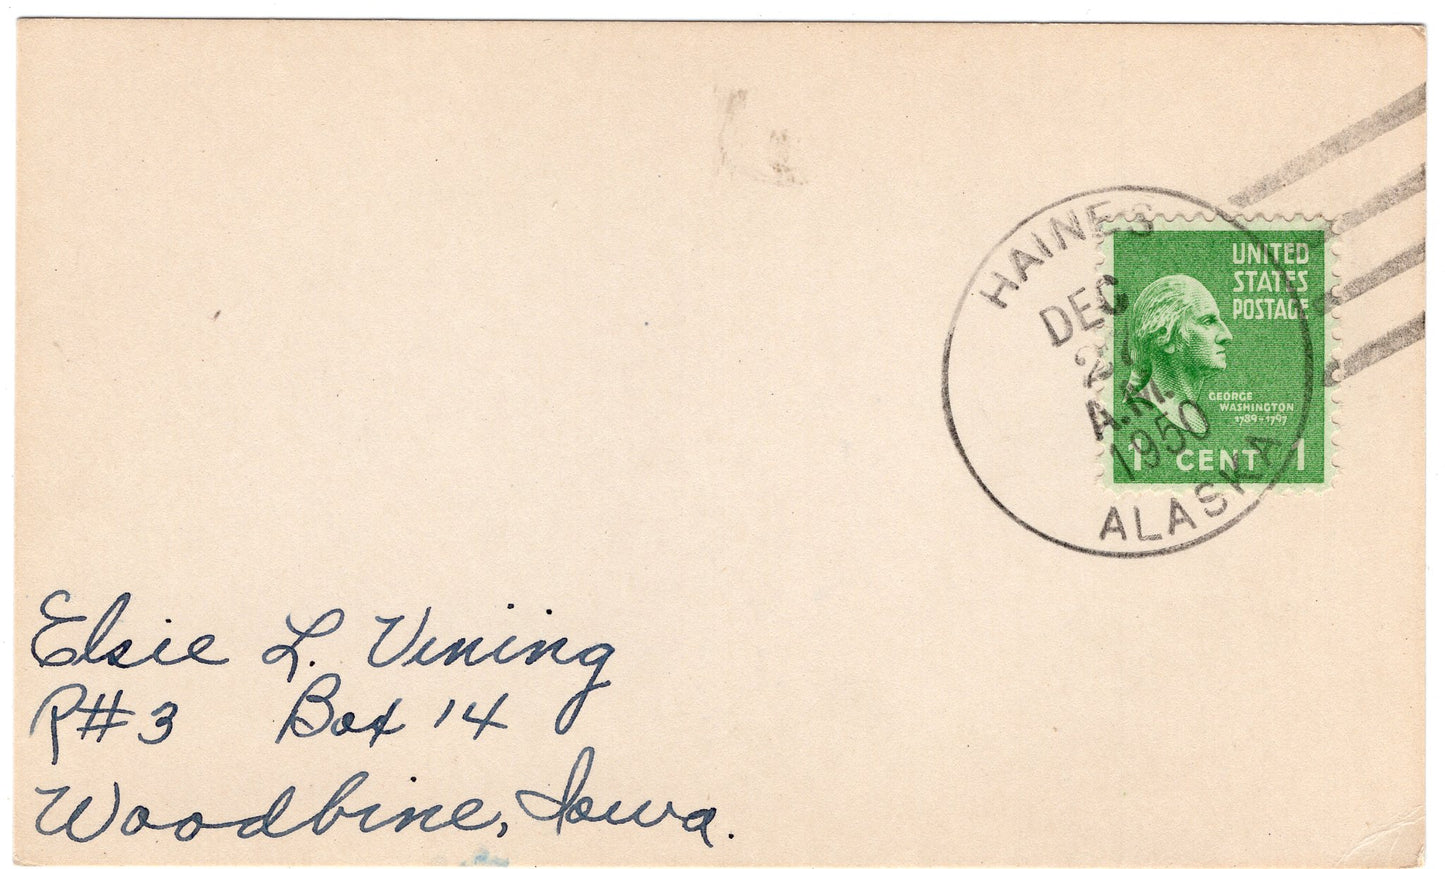 HAINES
DEC
A.M.
1950
ALASKA
UNITED
STATES
POSTAGE
GEORGE
WASHINGTON
1789-1797
1 CENT 1
Elsie L. Vining
R#3 Box 14
Woodbine, Iowa.